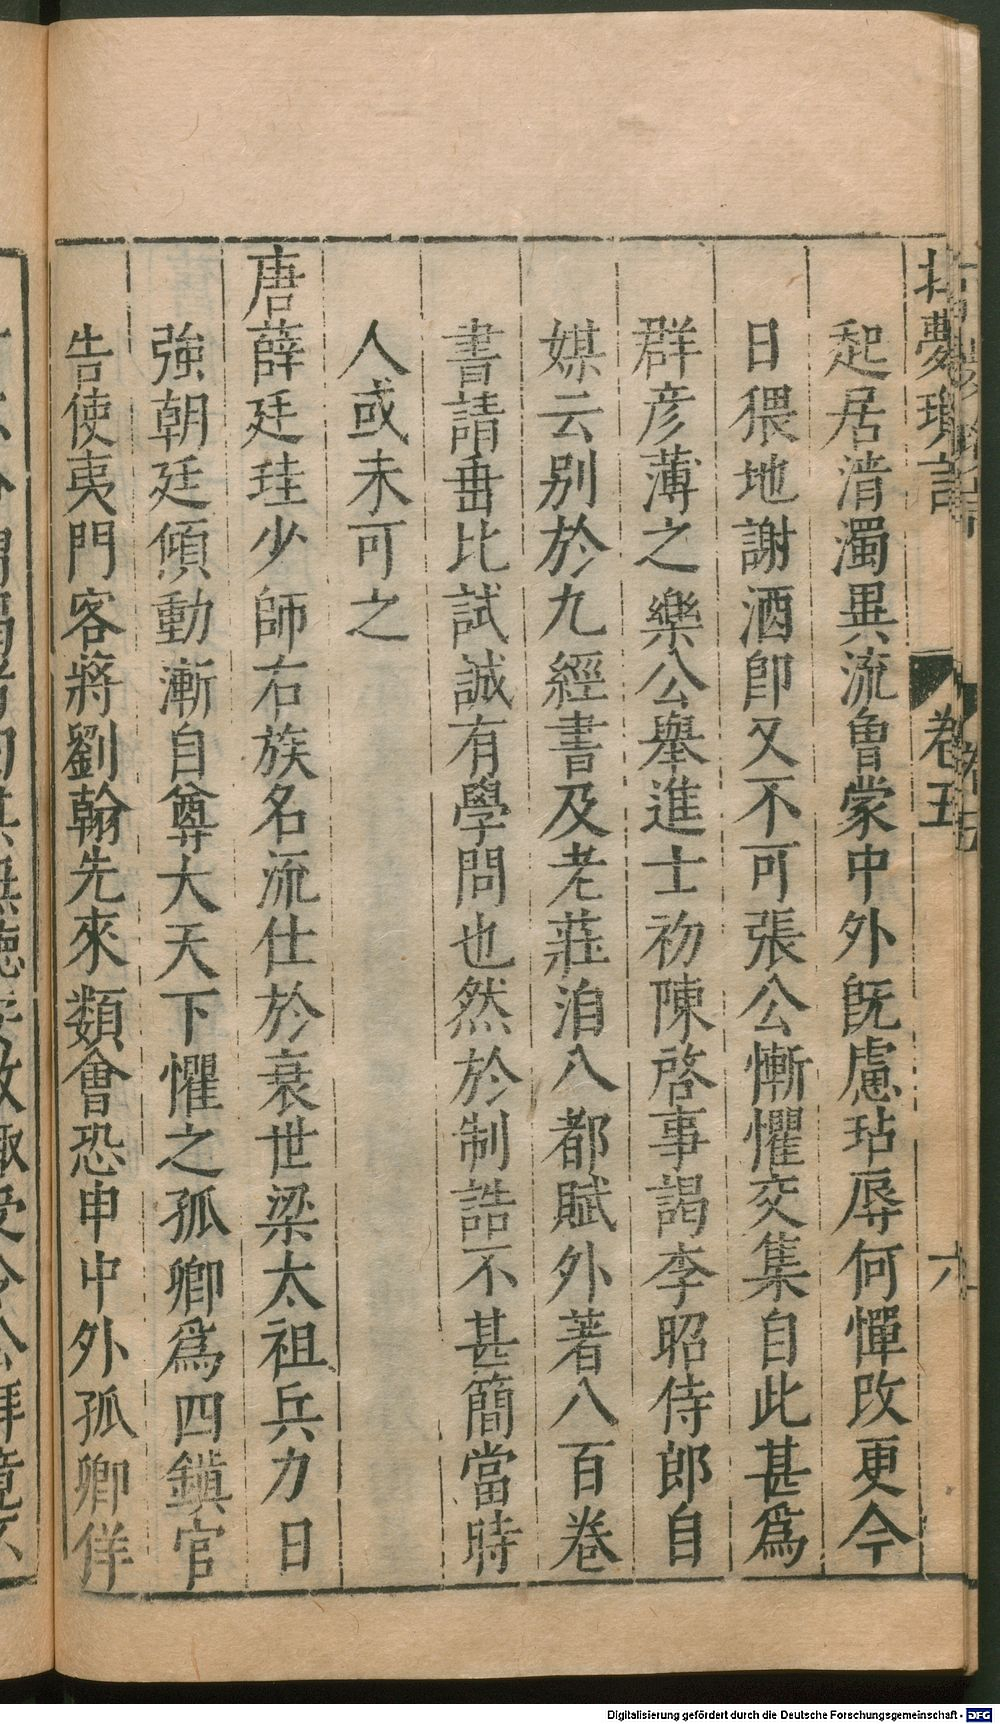 北夢瑣言 卷五 九
起居清濁異流曾蒙中外旣慮玷辱何憚改更今
日猥地謝酒卽又不可張公慚懼交集自此甚爲
群彥薄之樂公舉進士初陳啓事謁李昭侍郎自
媒云別於九經書及老莊洎八都賦外著八百卷
書請垂比試誠有學問也然於制誥不甚簡當時
人或未可之
唐薛廷珪少師右族名流仕於衰世梁太祖兵力日
強朝廷傾動漸自尊大天下懼之孤卿爲四鎮官
告使夷門客將劉翰先來類會恐申中外孤卿佯
Digitalisierung gefördert durch die Deutsche Forschungsgemeinschaft - DFG